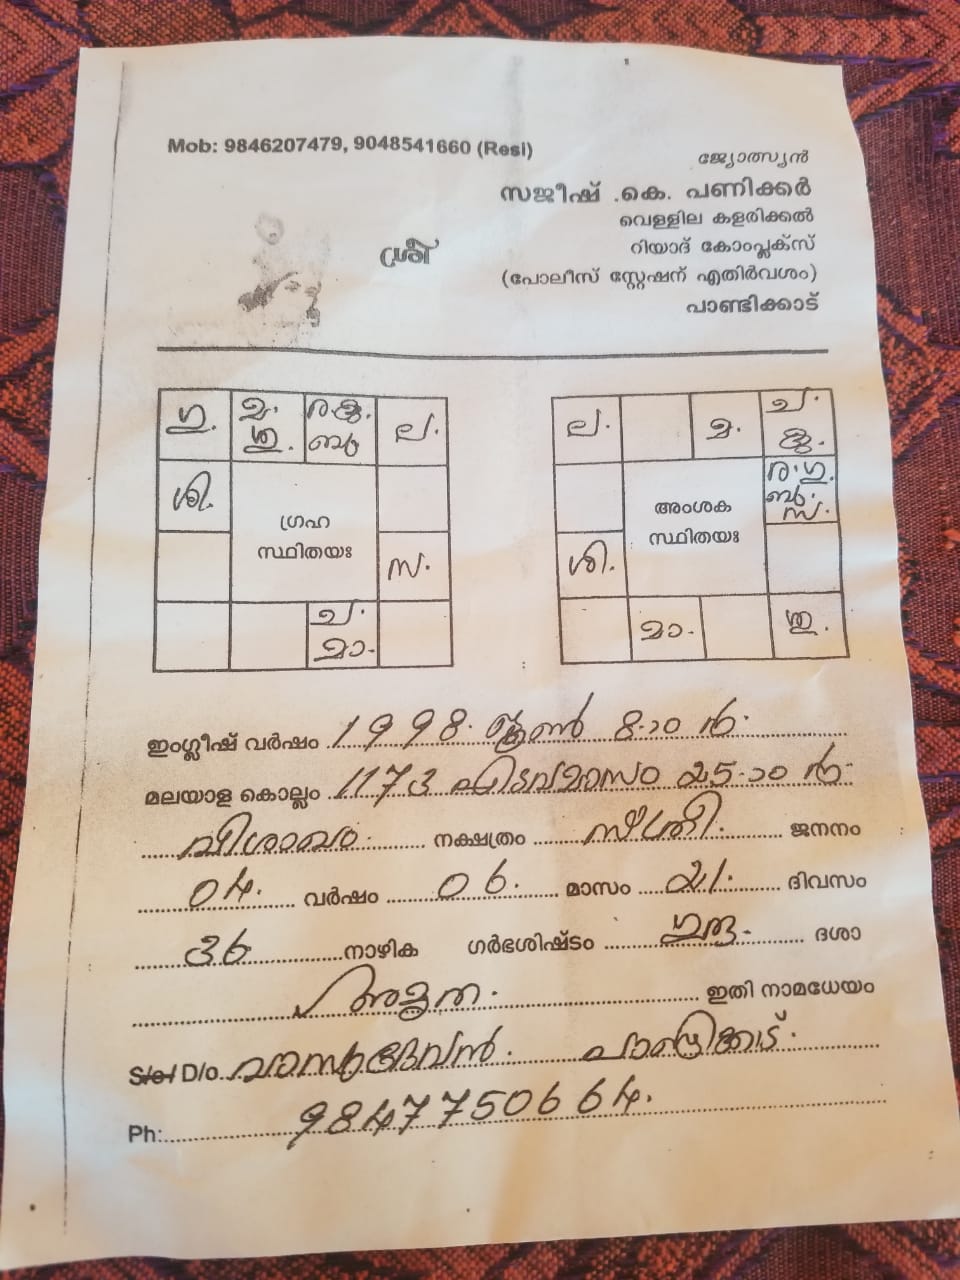 Mob: 9846207479, 9048541660 (Resi)
ജ്യോത്സ്യൻ
സജീഷ് .കെ. പണിക്കർ
വെള്ളില കളരിക്കൽ
ശ്രീ
റിയാദ് കോംപ്ലക്സ്
(പോലീസ് സ്റ്റേഷന് എതിർവശം)
പാണ്ടിക്കാട്
ഗു. മ. ശു. ര.കു. ബു ല.
ശി.
ഗ്രഹ
സ്ഥിതയഃ
സ.
ച. മാ.
ല. മ. ച. കു.
ര.ഗു. ബു. സ.
അംശക
സ്ഥിതയഃ
ശി.
മാ. ശു.
ഇംഗ്ലീഷ് വർഷം 1998 ജൂൺ 8-ാം
മലയാള കൊല്ലം 1173 ഇടവമാസം 25-ാം
വിശാഖം നക്ഷത്രം സ്ത്രീ ജനനം
04. വർഷം 06. മാസം 21. ദിവസം
36 നാഴിക ഗർഭശിഷ്ടം ഗുരു ദശാ
ഇതി നാമധേയം
S/o/ D/o വാസുദേവൻ. പാണ്ടിക്കാട്.
Ph: 9847750664.